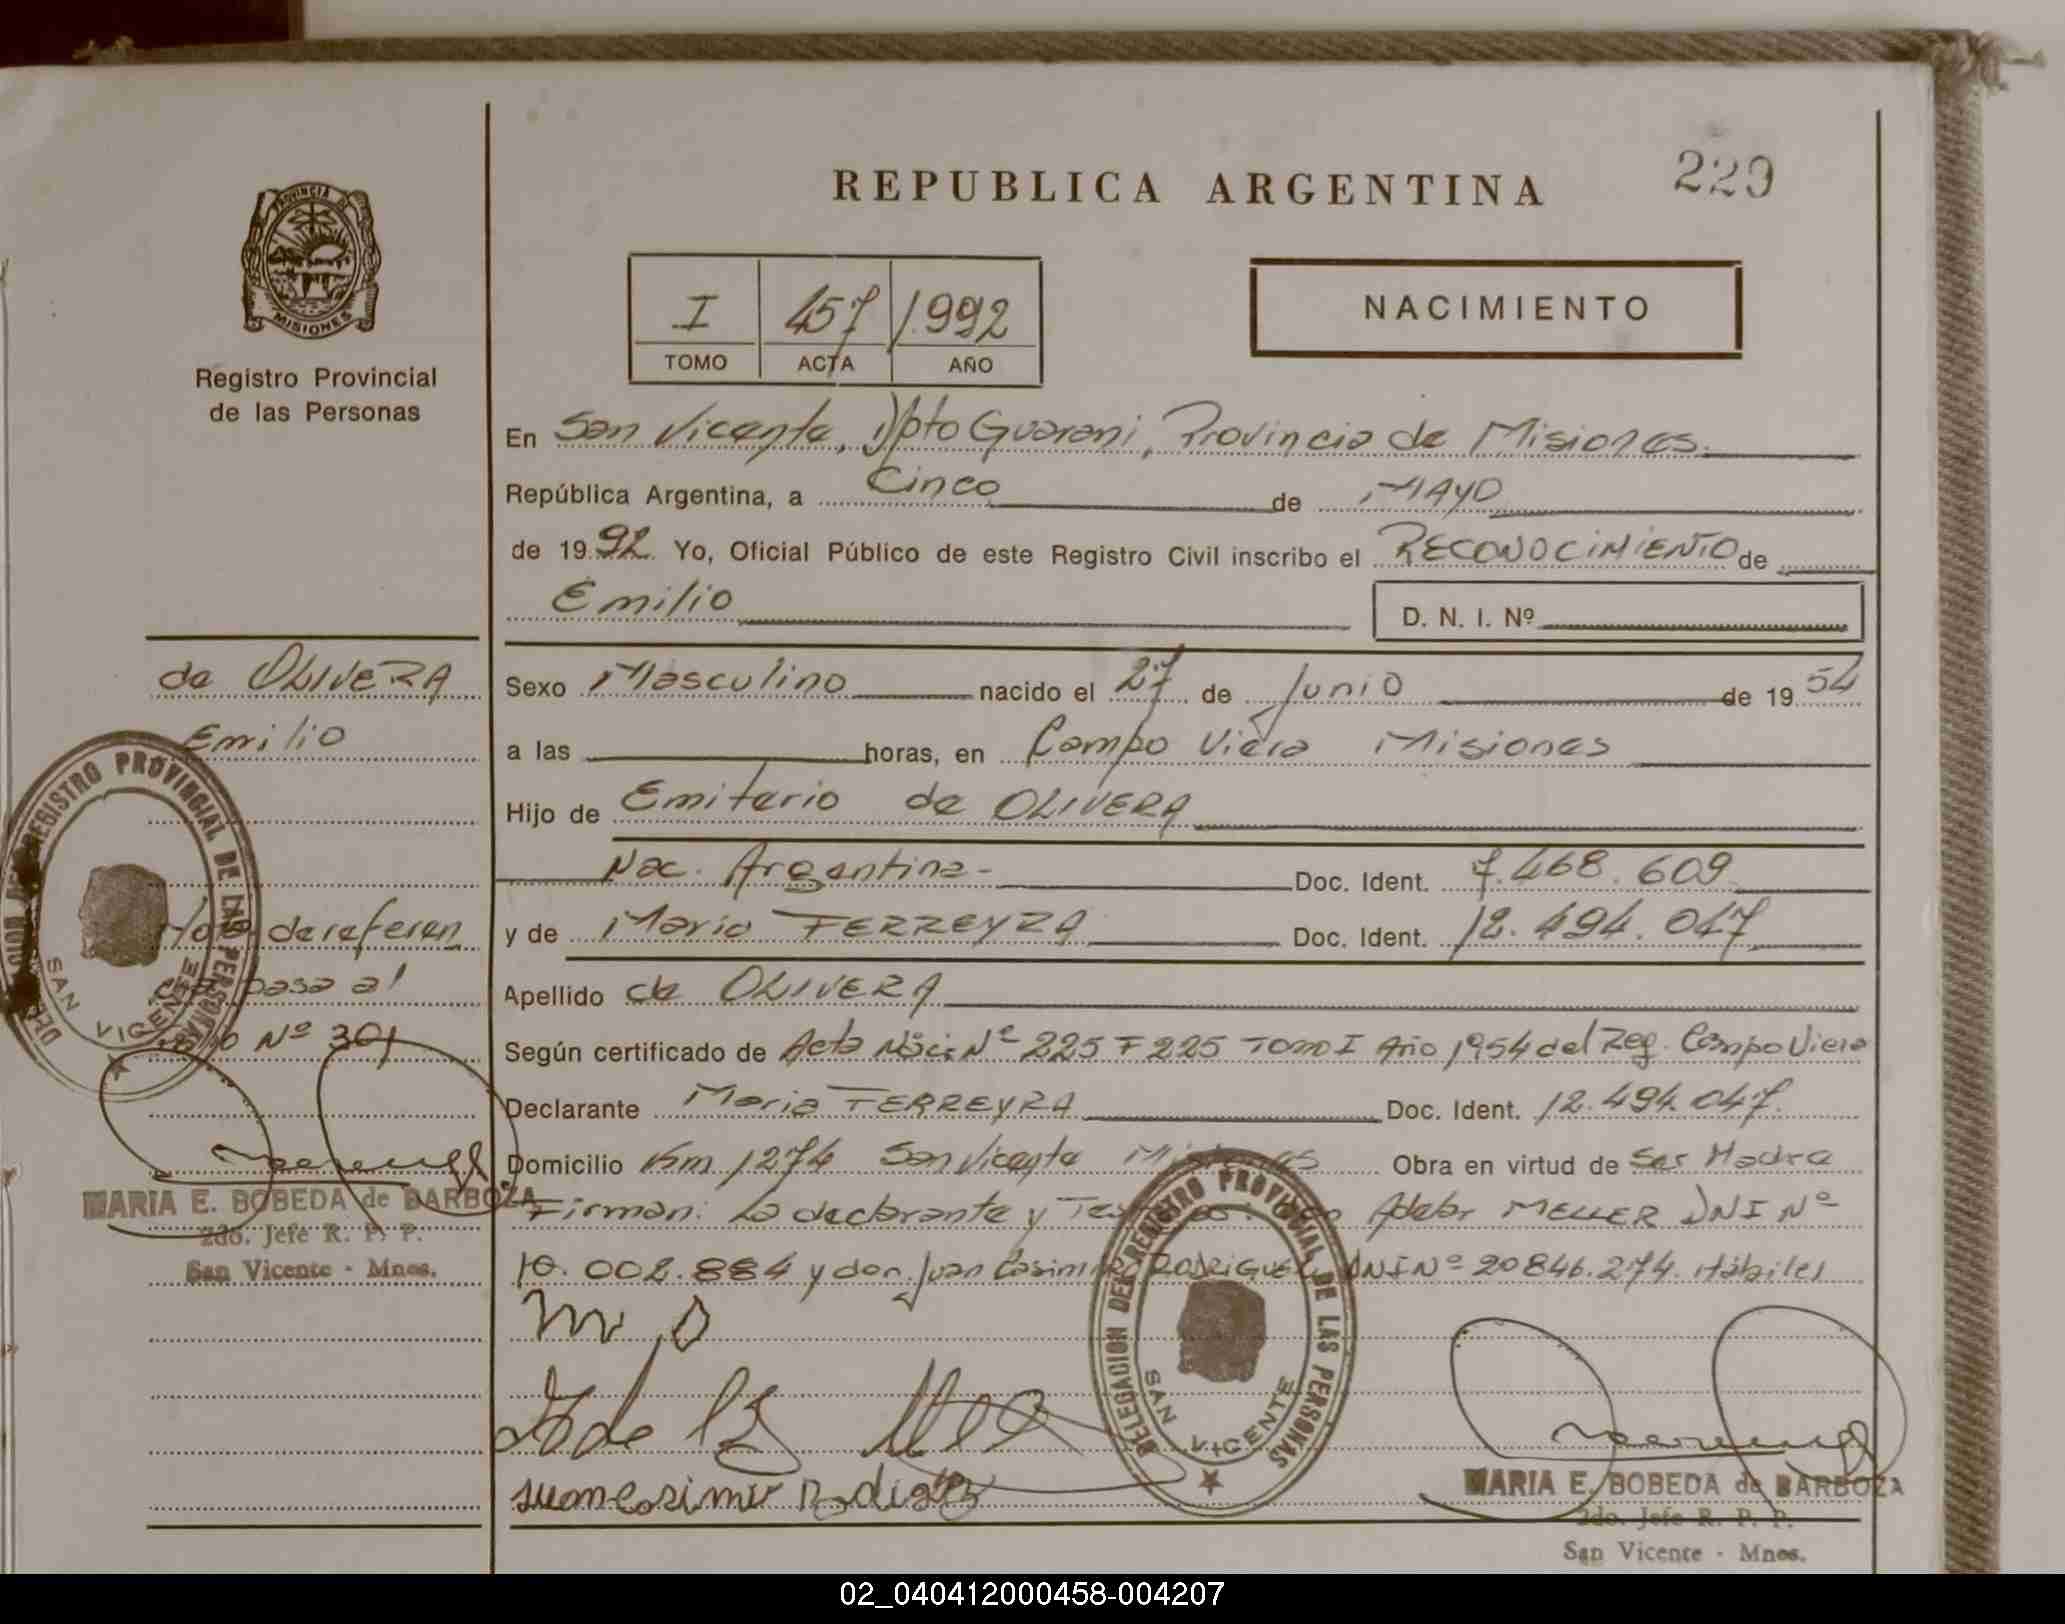 REPUBLICA ARGENTINA
229
PROVINCIA DE
MISIONES
Registro Provincial
de las Personas
I 457 1992
TOMO ACTA AÑO
NACIMIENTO
En San Vicente, Dpto Guarani, Provincia de Misiones.
República Argentina, a Cinco de MAYO
de 1992. Yo, Oficial Público de este Registro Civil inscribo el RECONOCIMIENTO de
Emilio
D. N. I. Nº
Sexo Masculino nacido el 27 de Junio de 1954
a las horas, en Campo Viera Misiones
Hijo de Emiterio de OLIVERA
Nac. Argentina- Doc. Ident. 7.468.609
y de Maria FERREYRA Doc. Ident. 12.494.047
Apellido de OLIVERA
Según certificado de Acta Nac. Nº 225 F 225 Tomo I Año 1954 del Reg. Campo Viera
Declarante Maria FERREYRA Doc. Ident. 12.494.047.
Domicilio Km 1274 San Vicente Misiones Obra en virtud de Ser Madre
Firman: La declarante y Testigos: Adelar MELLER DNI Nº
10.002.884 y don Juan Casimiro RODRIGUEZ DNI Nº 20846.274. Hábiles
Juan Casimir Rodriguez
DELEGACION DEL REGISTRO PROVINCIAL DE LAS PERSONAS
SAN VICENTE
MARIA E. BOBEDA de BARBOZA
2do. Jefe R. P. P.
San Vicente - Mnes.
de OLIVERA
Emilio
Nota de referen
cia pasa al
Folio Nº 301
DELEGACION DEL REGISTRO PROVINCIAL DE LAS PERSONAS
SAN VICENTE
MARIA E. BOBEDA de BARBOZA
2do. Jefe R. P. P.
San Vicente - Mnes.
02_040412000458-004207